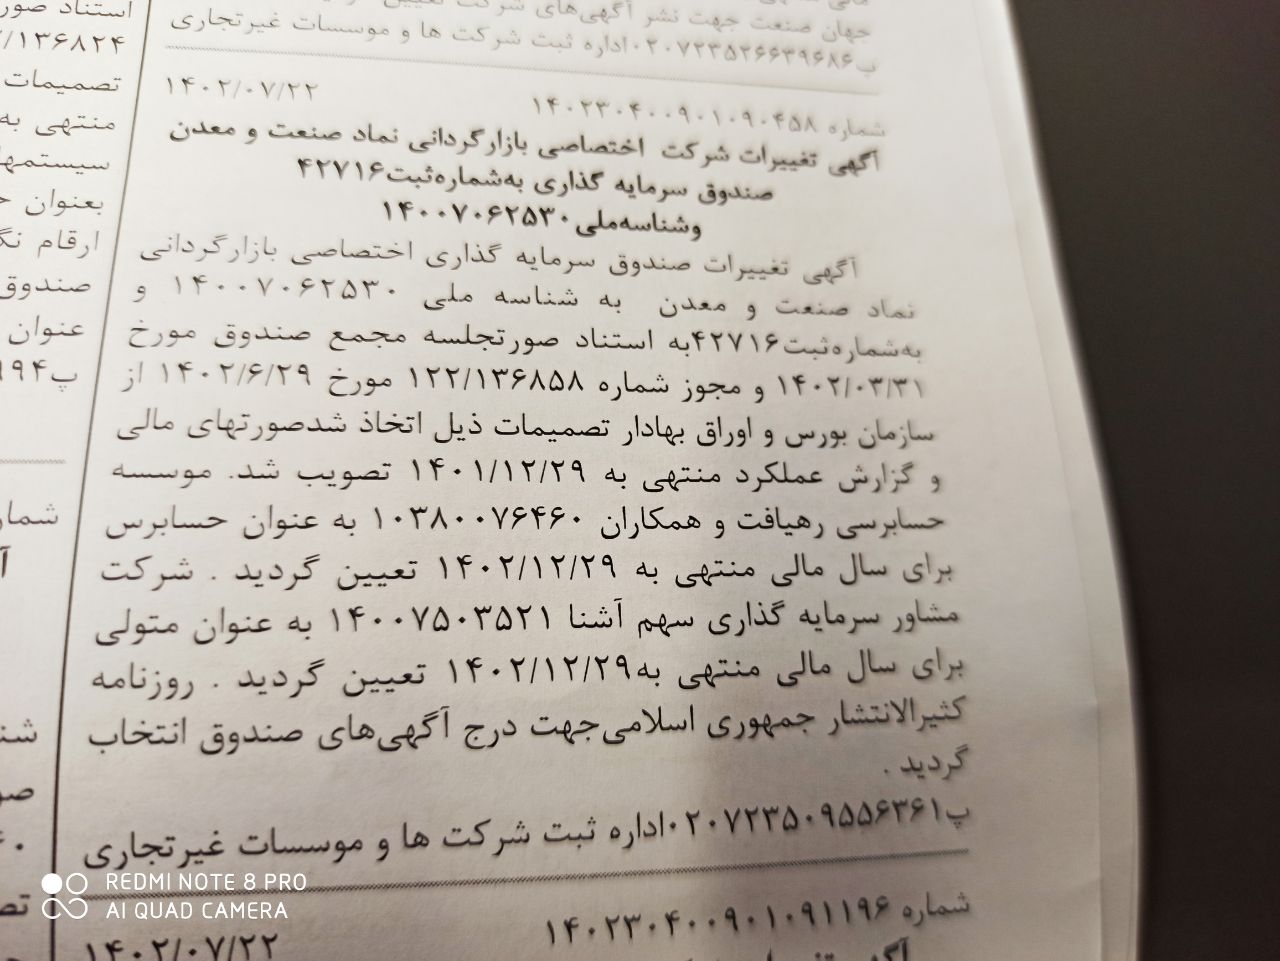 جهان صنعت جهت نشر آگهی‌های شرکت تعیین
پ۰۲۰۷۲۳۵۲۶۶۳۹۶۸۶اداره ثبت شرکت ها و موسسات غیرتجاری
شماره ۱۴۰۲۳۰۴۰۰۹۰۱۰۹۰۴۵۸ ۱۴۰۲/۰۷/۲۲
آگهی تغییرات شرکت اختصاصی بازارگردانی نماد صنعت و معدن
صندوق سرمایه گذاری به‌شماره‌ثبت۴۲۷۱۶
وشناسه‌ملی۱۴۰۰۷۰۶۲۵۳۰
آگهی تغییرات صندوق سرمایه گذاری اختصاصی بازارگردانی
نماد صنعت و معدن به شناسه ملی ۱۴۰۰۷۰۶۲۵۳۰ و
به‌شماره‌ثبت۴۲۷۱۶به استناد صورتجلسه مجمع صندوق مورخ
۱۴۰۲/۰۳/۳۱ و مجوز شماره ۱۲۲/۱۳۶۸۵۸ مورخ ۱۴۰۲/۶/۲۹ از
سازمان بورس و اوراق بهادار تصمیمات ذیل اتخاذ شدصورتهای مالی
و گزارش عملکرد منتهی به ۱۴۰۱/۱۲/۲۹ تصویب شد. موسسه
حسابرسی رهیافت و همکاران ۱۰۳۸۰۰۷۶۴۶۰ به عنوان حسابرس
برای سال مالی منتهی به ۱۴۰۲/۱۲/۲۹ تعیین گردید . شرکت
مشاور سرمایه گذاری سهم آشنا ۱۴۰۰۷۵۰۳۵۲۱ به عنوان متولی
برای سال مالی منتهی به۱۴۰۲/۱۲/۲۹ تعیین گردید . روزنامه
کثیرالانتشار جمهوری اسلامی‌جهت درج آگهی‌های صندوق انتخاب
گردید .
پ۰۲۰۷۲۳۵۰۹۵۵۶۳۶۱اداره ثبت شرکت ها و موسسات غیرتجاری
شماره ۱۴۰۲۳۰۴۰۰۹۰۱۰۹۱۱۹۶ ۱۴۰۲/۰۷/۲۲
استناد صور
تصمیمات
منتهی به
سیستمها
بعنوان
ارقام
صندوق
عنوان
REDMI NOTE 8 PRO
AI QUAD CAMERA